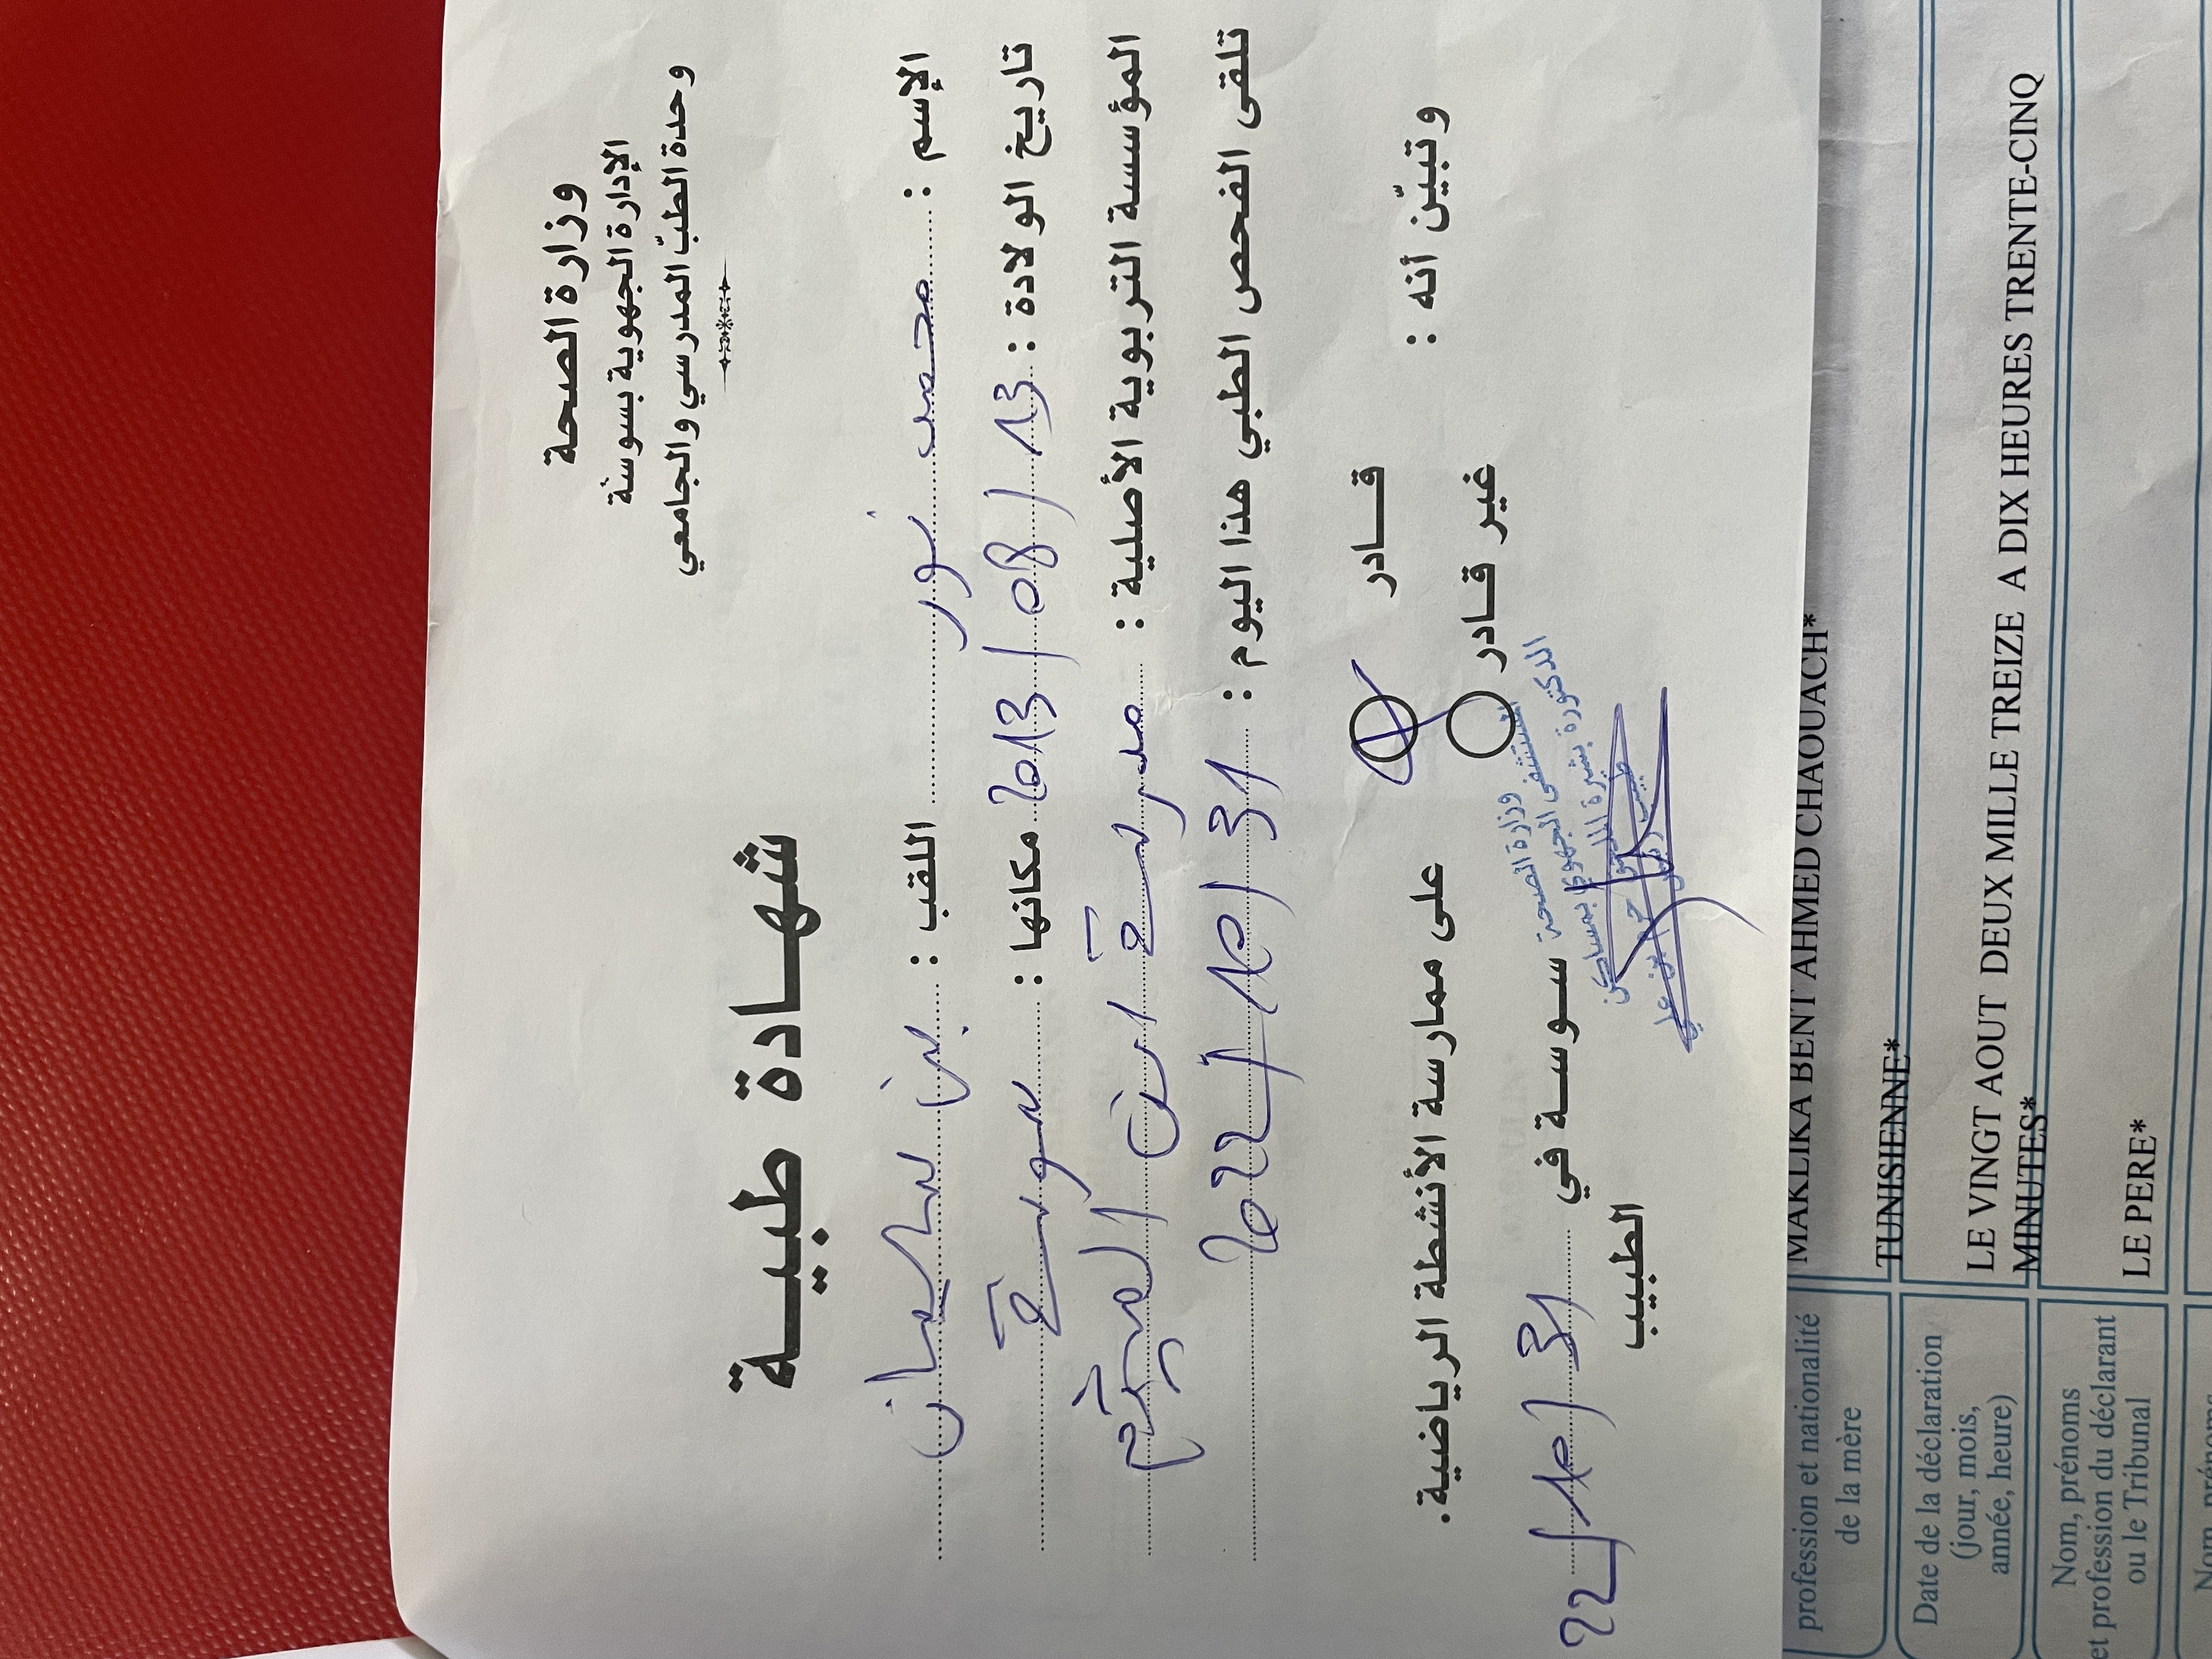 وزارة الصحة
الإدارة الجهوية بسوسة
وحدة الطبّ المدرسي والجامعي
شهادة طبية
الإسم : محمد نور اللقب : بن سليمان
تاريخ الولادة : 13 / 08 / 2013 مكانها : سوسة
المؤسسة التربوية الأصلية : مدرسة ابن
تلقى الفحص الطبي هذا اليوم : 31 / 10 / 2022
وتبيّن أنه :
قادر
غير قادر
على ممارسة الأنشطة الرياضية.
سوسة في 31 / 10 / 22
الطبيب
وزارة الصحة
المستشفى الجهوي بمساكن
الدكتورة بشيرة
MAKLIKA BENT AHMED CHAOUACH*
profession et nationalité
de la mère
TUNISIENNE*
Date de la déclaration
(jour, mois,
année, heure)
LE VINGT AOUT DEUX MILLE TREIZE A DIX HEURES TRENTE-CINQ
MINUTES*
Nom, prénoms
et profession du déclarant
ou le Tribunal
LE PERE*